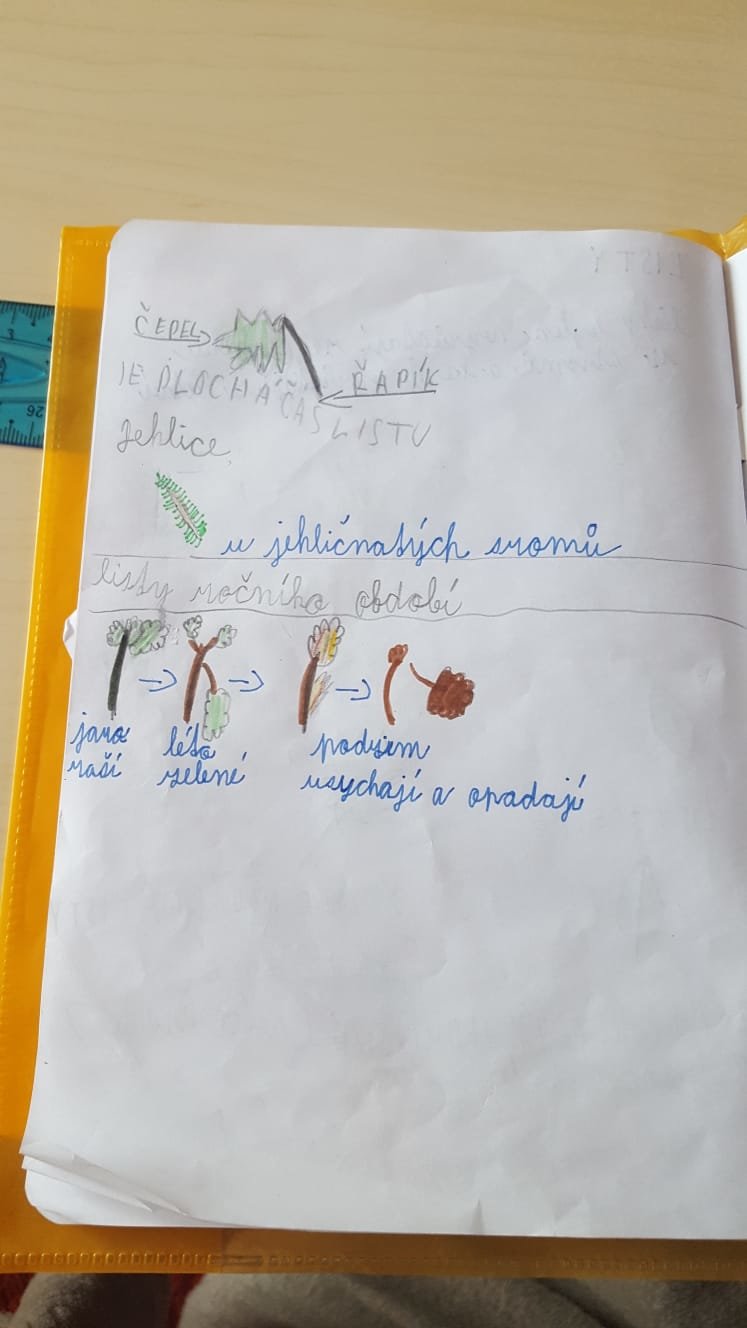 ČEPEL
JE PLOCHÁ ČÁS LISTU
ŘAPÍK
Jehlice
u jehličnatých sromů
listy ročního období
jaro
raší
léto
zelené
podzim
usychají a opadají
LISTY
26